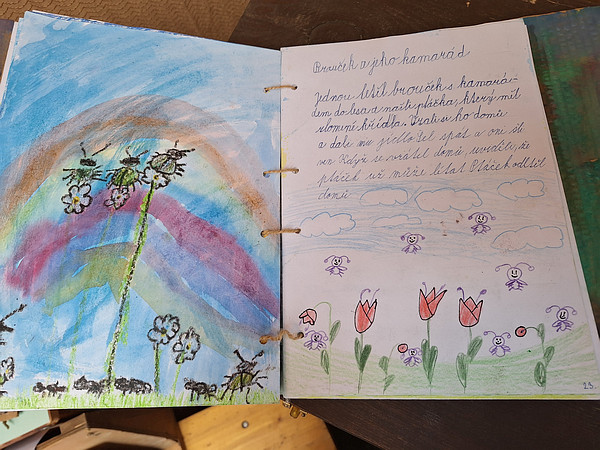 Brouček a jeho kamarád
Jednou letěl brouček s kamará-
dem do lesa a našli ptáčka, který měl
zlomené křídlo. Vzali ho domů
a dali mu jídlo. Šel spát a oni šli
ven. Když se vrátil domů, uviděli, že
ptáček už může létat. Ptáček odletěl
domů.
23.